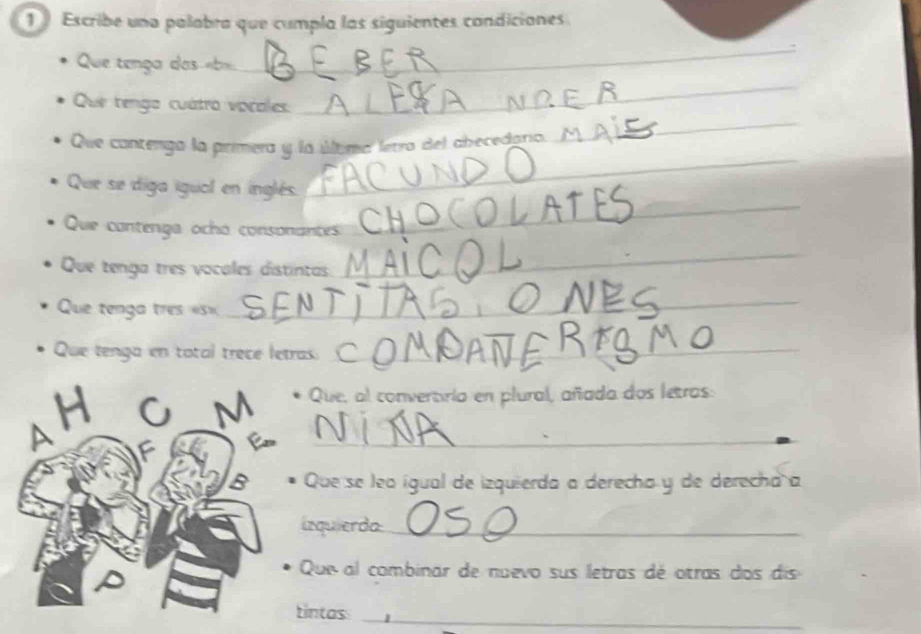 1 Escribe una palabra que cumpla las siguientes condiciones.
• Que tenga dos «b». BEBER
• Que tenga cuatro vocales.
• Que contenga la primera y la última letra del abecedario. MAIS
• Que se diga igual en inglés. FACUNDO
• Que contenga ocho consonantes CHOCOLATES
• Que tenga tres vocales distintas. MAICOL
• Que tenga tres «s».
• Que tenga en total trece letras.
H C M
A F E
B
P
• Que, al convertirlo en plural, añada dos letras:
NIÑA
• Que se lea igual de izquierda a derecha y de derecha a
izquierda: OSO
• Que al combinar de nuevo sus letras dé otras dos dis-
tintas: